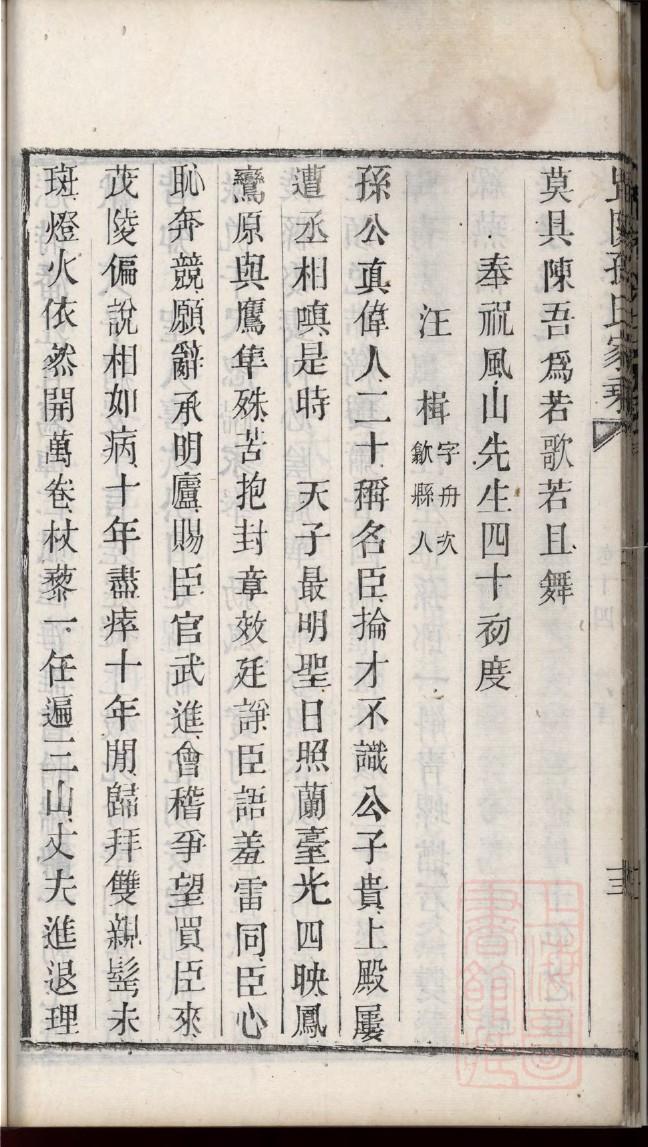 莫具陳吾爲若歌若且舞
奉祝風山先生四十初度
汪楫字舟次歙縣人
孫公真偉人二十稱名臣掄才不識公子貴上殿屢
遭丞相嗔是時 天子最明聖日照蘭臺光四映鳳
鸞原與鷹隼殊苦抱封章效廷諍臣語羞雷同臣心
恥奔競願辭承明廬賜臣官武進會稽爭望買臣來
茂陵偏說相如病十年盡瘁十年閒歸拜雙親髩未
斑燈火依然開萬卷杖藜一任遍三山丈夫進退理
孫氏家乘
三